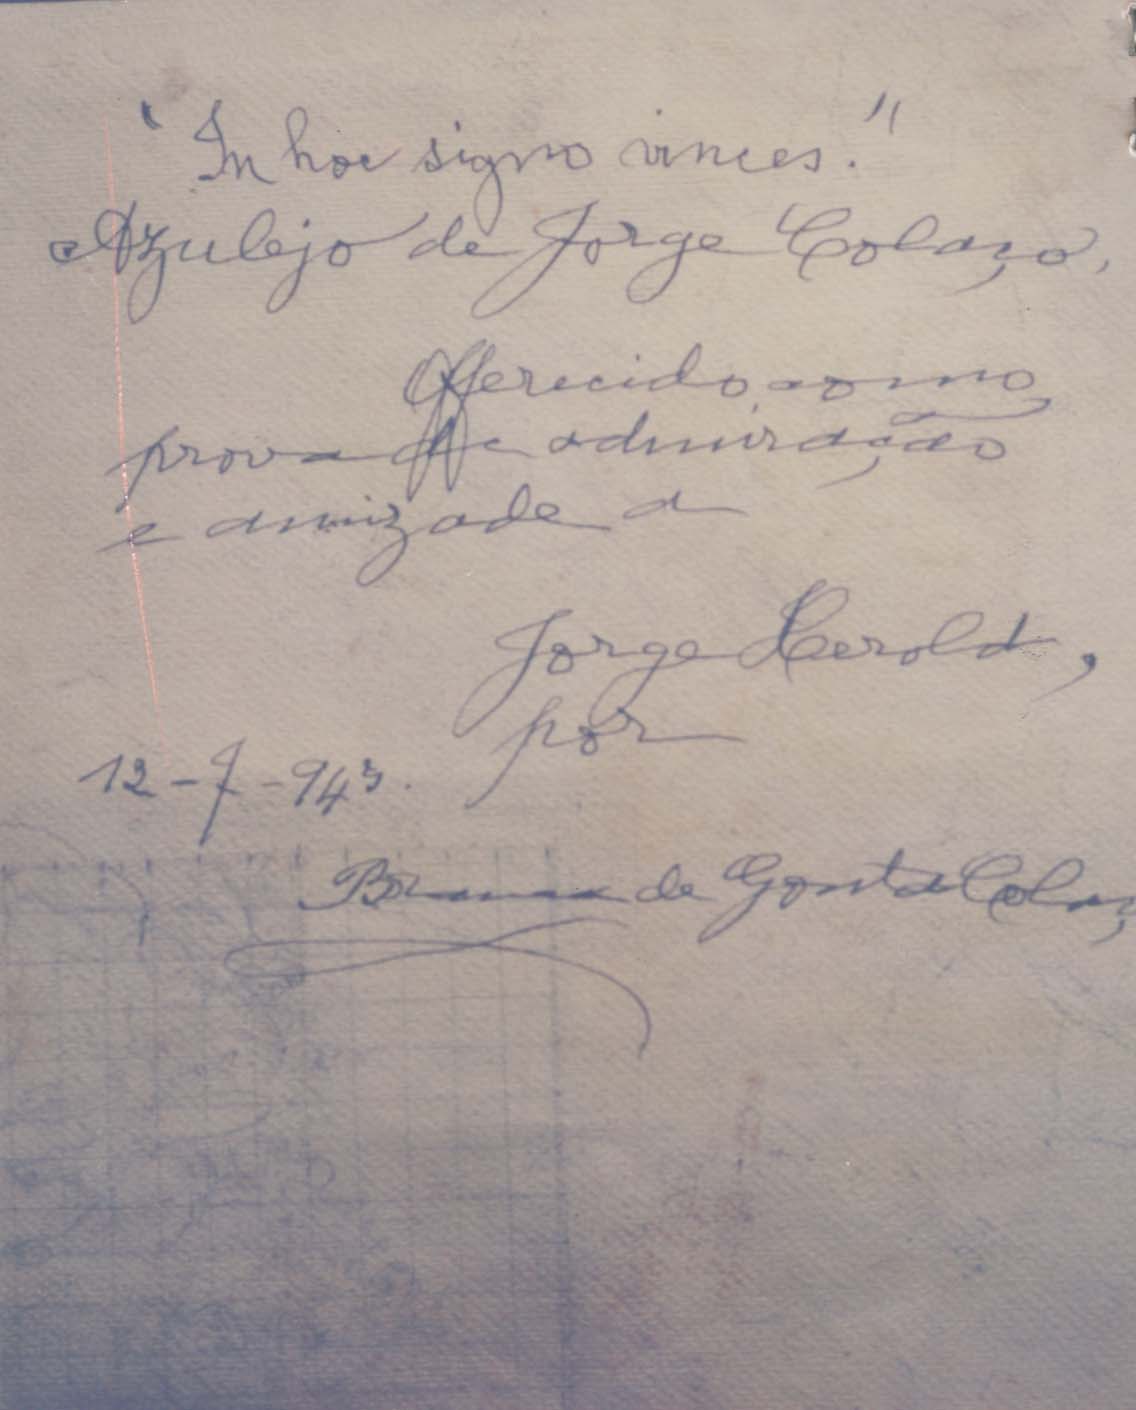 "In hoc signo vinces."
Azulejo de Jorge Colaço,
Offerecido como
prova de admiração
e amizade a
Jorge Herold,
por
12-7-943.
Branca de Gonta Colaç